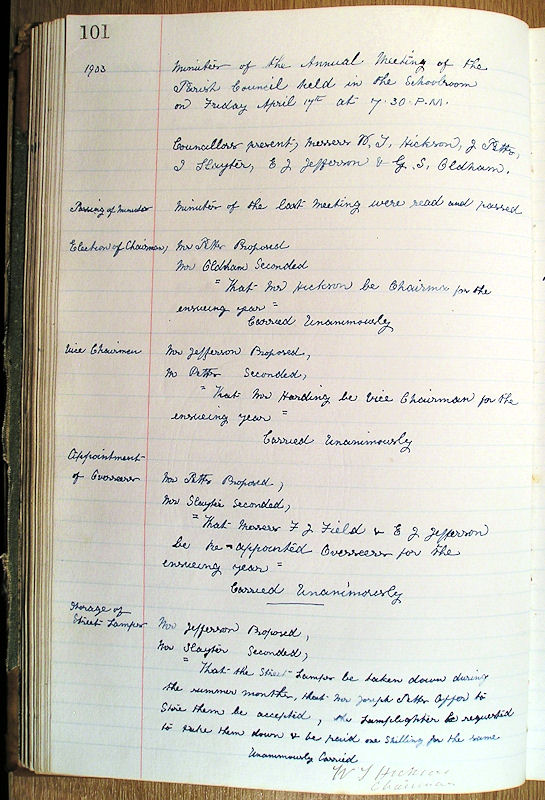 101
1903 Minutes of the Annual Meeting of the
Parish Council held in the Schoolroom
on Friday April 17th at 7.30.P.M.
Councillors present, Messrs W. T. Hickson, J Petts,
I Slayter, E J Jefferson & G. S. Oldham.
Passing of Minutes Minutes of the last Meeting were read and passed
Election of Chairman, Mr Petts Proposed
Mr Oldham Seconded
"That Mr Hickson be Chairman for the
ensueing year"
Carried Unanimously
Vice Chairman Mr Jefferson Proposed,
Mr Petts Seconded,
"That Mr Harding be Vice Chairman for the
ensueing year"
Carried Unanimously
Appointment
of Overseers Mr Petts Proposed,
Mr Slayter Seconded,
"That Messrs F J Field & E J Jefferson
be Re-appointed Overseers for the
ensueing year"
Carried Unanimously
Storage of
Street Lamps Mr Jefferson Proposed,
Mr Slayter Seconded,
"That the Street Lamps be taken down during
the summer months, that Mr Joseph Petts offer to
Store them be accepted, the Lamplighter be requested
to take them down & be paid one Shilling for the same
Unanimously Carried
W T Hickson
Chairman